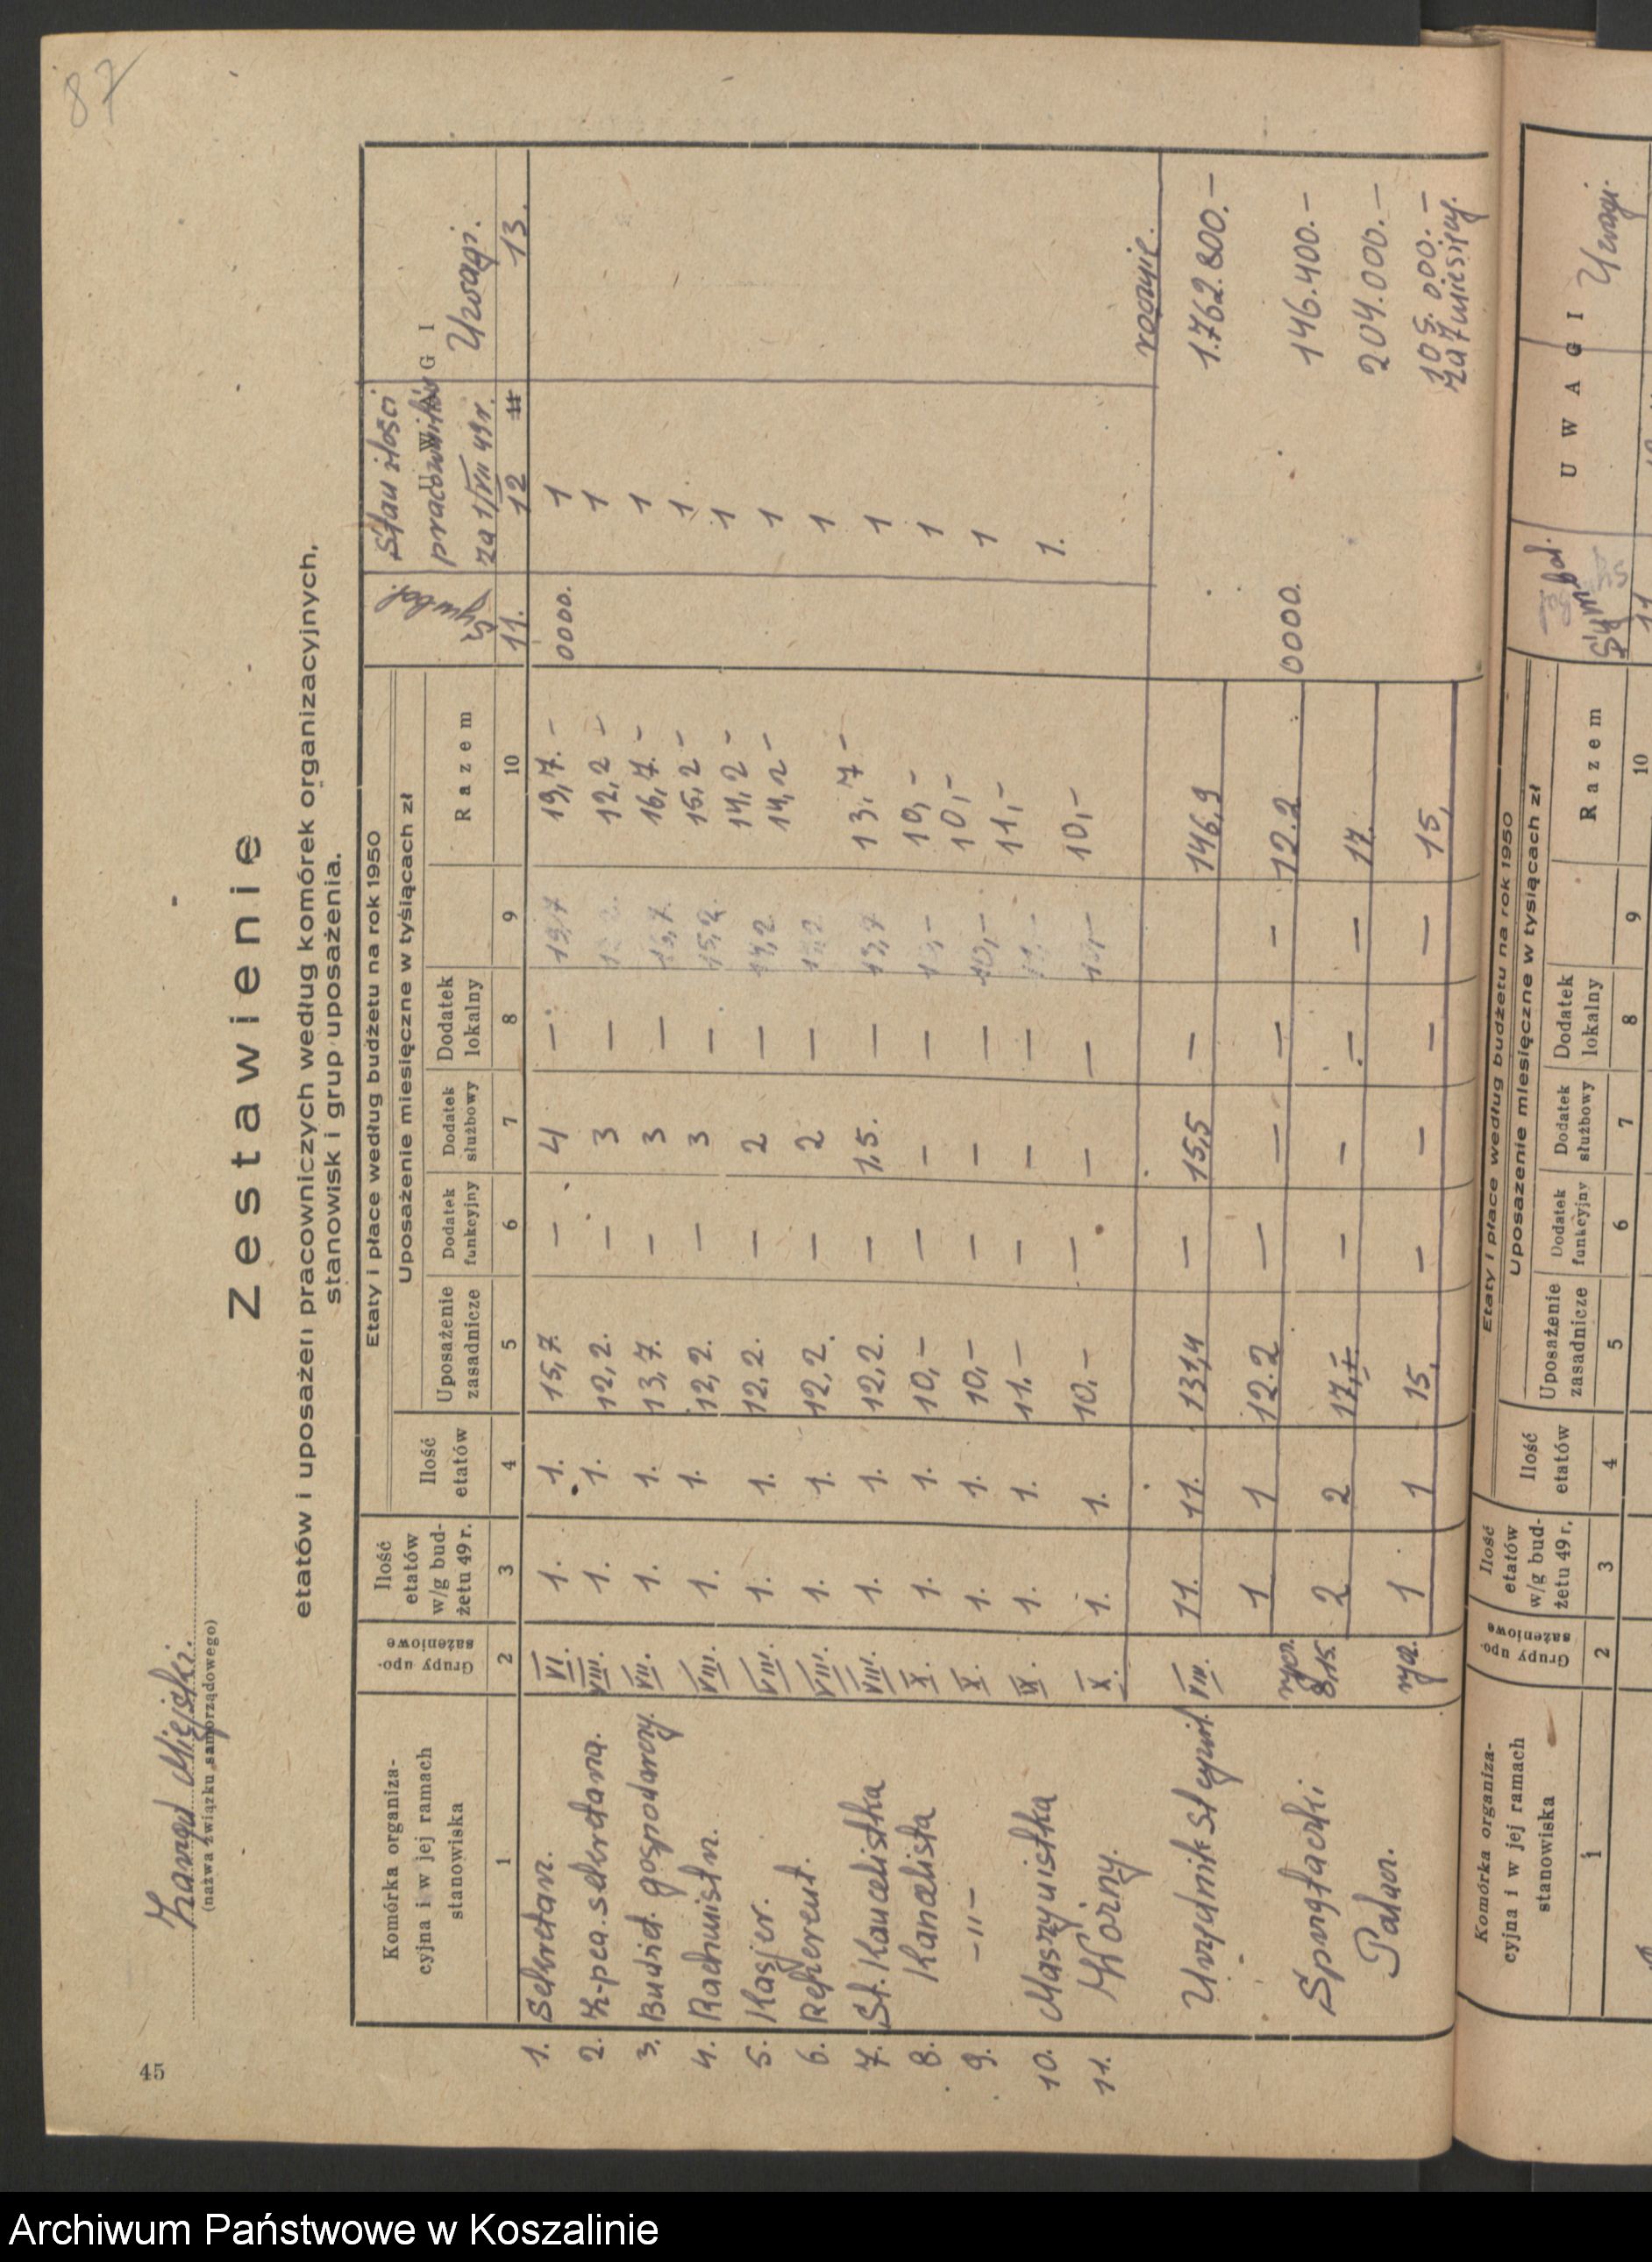 87
45
Zarząd Miejski.
(nazwa związku samorządowego)
Zestawienie
etatów i uposażeń pracowniczych według komórek organizacyjnych,
stanowisk i grup uposażenia.
Komórka organiza-
cyjna i w jej ramach
stanowiska
Grupy upo-
sażeniowe
Ilość
etatów
w/g bud-
żetu 49 r.
Etaty i płace według budżetu na rok 1950
Ilość
etatów
Uposażenie miesięczne w tysiącach zł
Uposażenie
zasadnicze
Dodatek
funkcyjny
Dodatek
służbowy
Dodatek
lokalny
Razem
Symbol.
Stan ilości
pracowników
za 1/VII 49 r.
UWAGI
Uwagi.
1 2 3 4 5 6 7 8 9 10 11. 12 11 13.
1. Sekretarz. VI. 1. 1. 15,7. — 4 — 19,7 19,7.— 0000. 1
2. Z-pca. sekretarza. VIII. 1. 1. 12,2. — 3 — 12,2 — 1
3. Budżet. gospodarczy. VII. 1. 1. 13,7. — 3 — 16,7. 16,7.— 1
4. Rachmistrz. VIII. 1. 1. 12,2. — 3 — 15,2. 15,2 — 1
5. Kasjer. VIII. 1. 1. 12,2. — 2 — 14,2 14,2 — 1
6. Referent. VIII. 1. 1. 12,2. — 2 — 14,2 — 1
7. St. Kancelistka VIII. 1. 1. 12,2. — 1,5. — 13,7 13,7 — 1
8. Kancelista X. 1. 1. 10,— — — — 10,— 1
9. —"— X. 1. 1. 10,— — — — 10,— 10,— 1
10. Maszynistka IX. 1. 1. 11.— — — — 11,— 1
11. Woźny. X. 1. 1. 10.— — — — 10,— 10,— 1.
rocznie.
11. 11. 131,4 — 15,5 — 146,9 1.762.800.—
Urzędnik St. Cywil. VIII. 1 1 12.2 — — — — 12.2 0000. 146.400.—
Sprzątaczki rycz. 2 2 17,— — — — — 17. 204.000.—
Palacz. rycz. 1 1 15, — — — — 15, 105.000.—
za 7 miesięcy.
Komórka organiza-
cyjna i w jej ramach
stanowiska
Grupy upo-
sażeniowe
Ilość
etatów
w/g bud-
żetu 49 r.
Etaty i płace według budżetu na rok 1950
Ilość
etatów
Uposażenie miesięczne w tysiącach zł
Uposażenie
zasadnicze
Dodatek
funkcyjny
Dodatek
służbowy
Dodatek
lokalny
Razem
Symbol.
UWAGI
Uwagi.
1 2 3 4 5 6 7 8 9 10 11
Archiwum Państwowe w Koszalinie